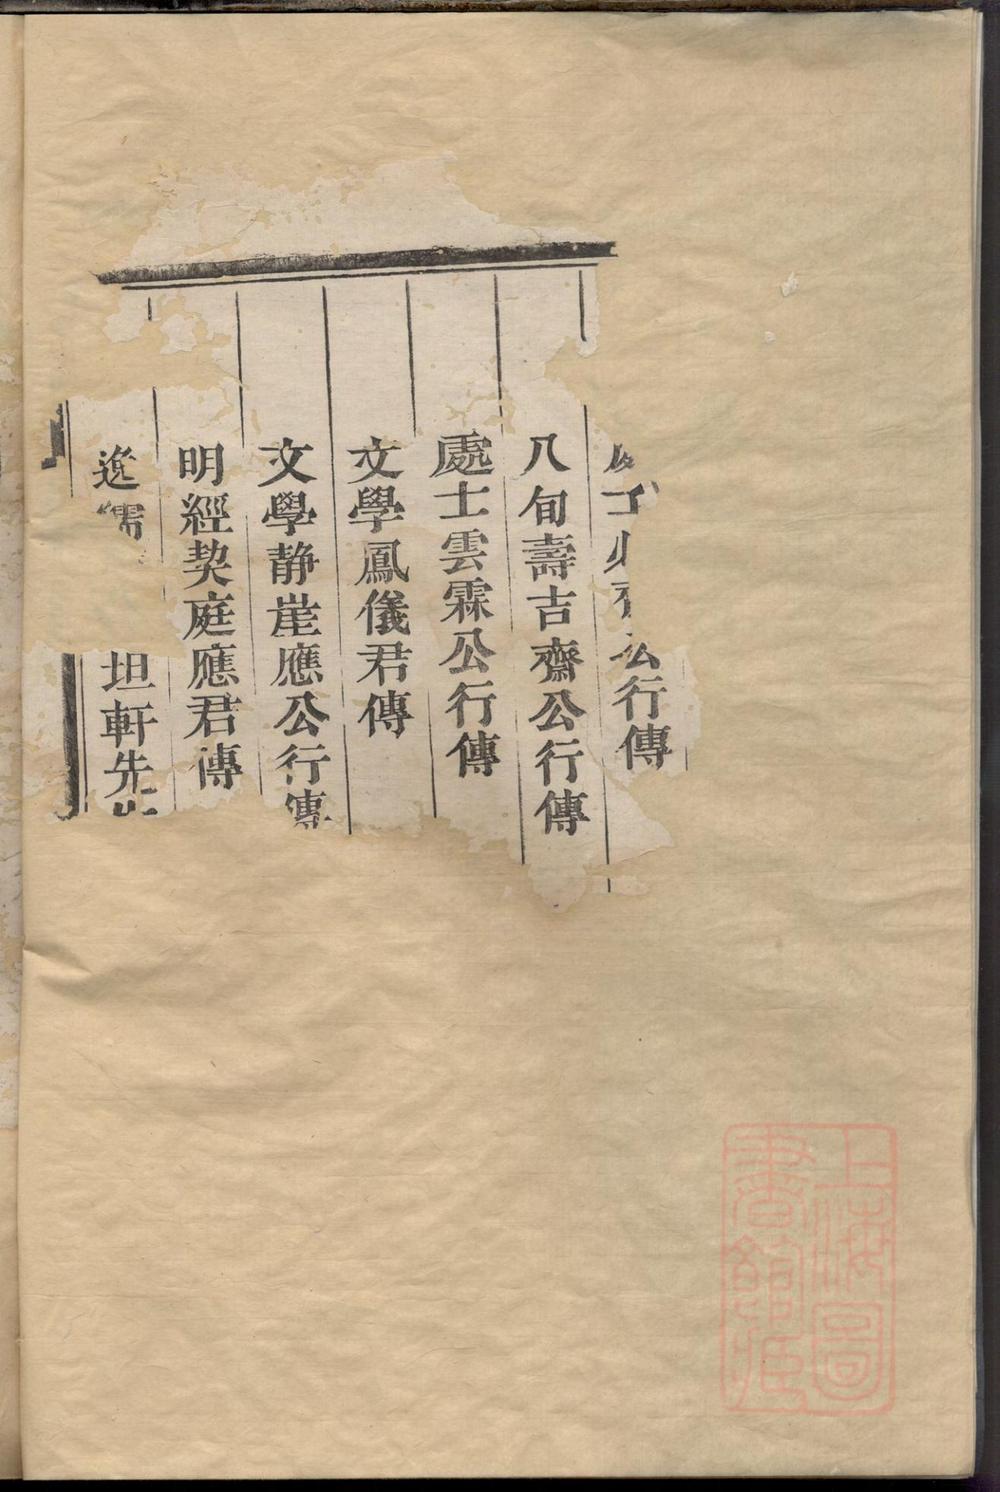 公行傳
八旬壽吉齋公行傳
處士雲霖公行傳
文學鳳儀君傳
文學静崖應公行傳
明經契庭應君傳
逸儒坦軒先生
上海圖書館藏